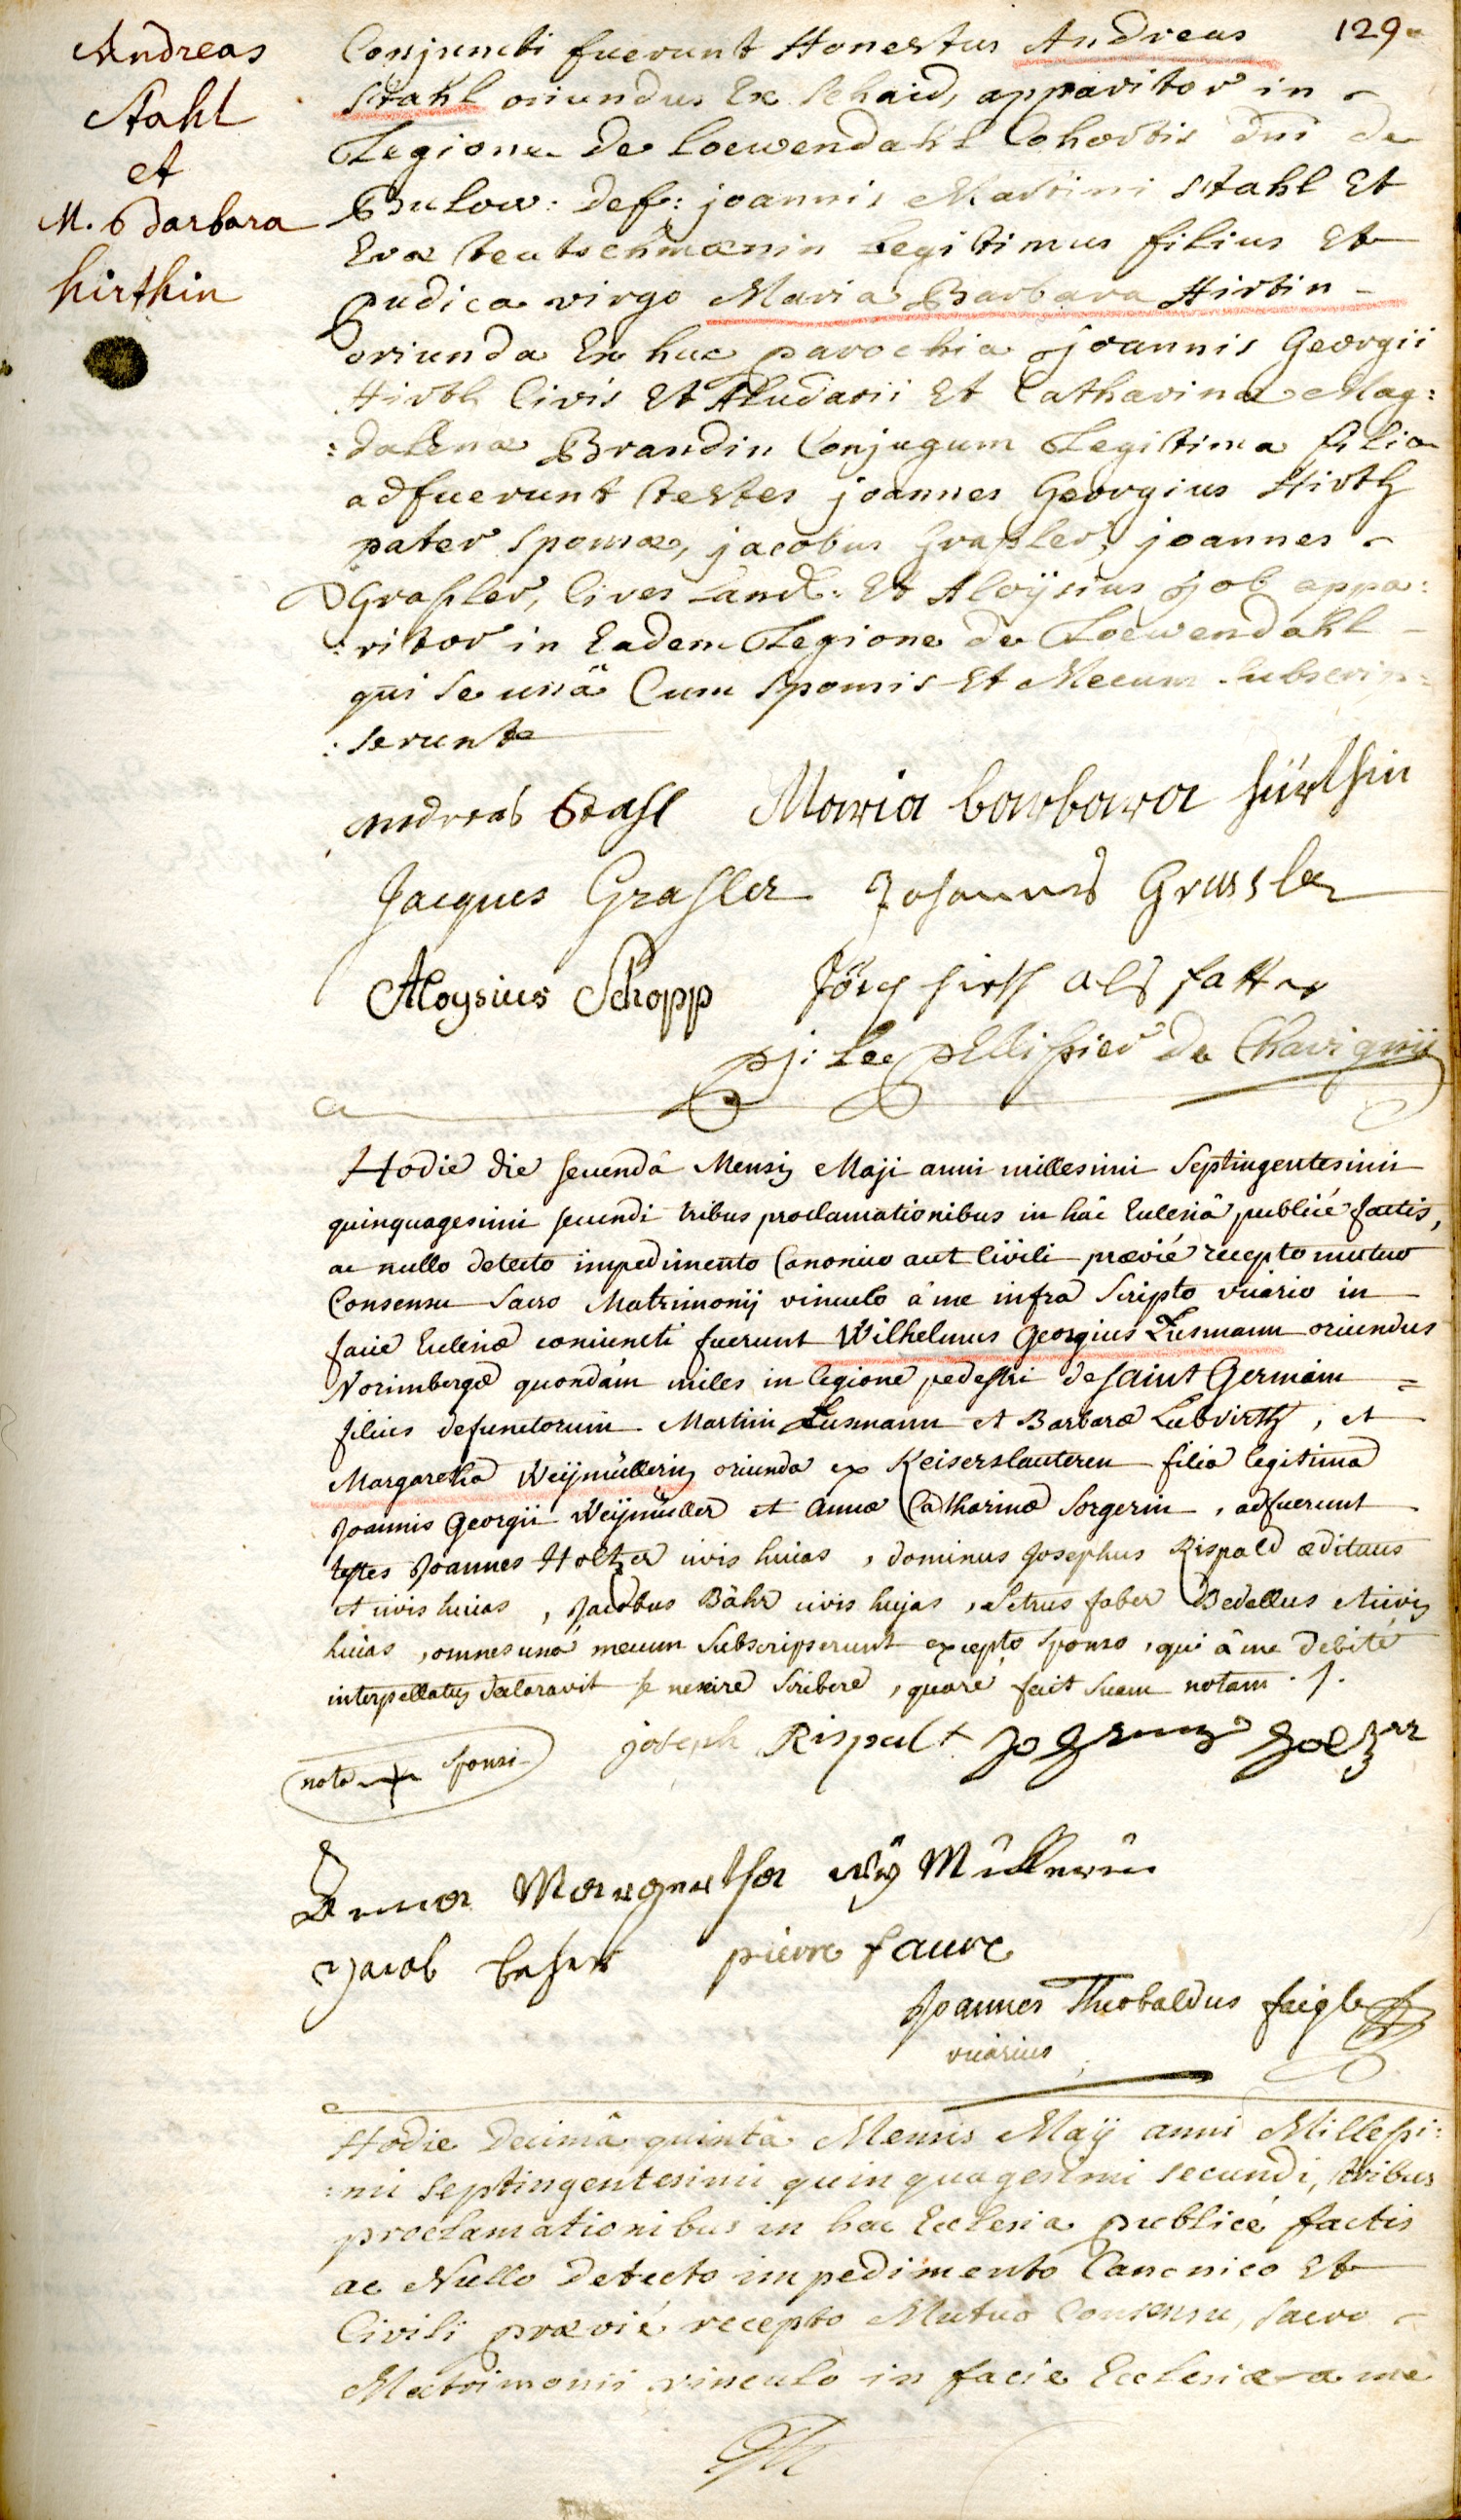 129.
Andreas
Stahl
et
M. Barbara
hirthin
Conjuncti fuerunt Honestus Andreas
Stahl oriundus Ex Schaid, apparitor in
Legione de Loewendahl Cohortis dni de
Bulow: def: joannis Martini Stahl Et
Evæ teutschmænin Legitimus filius Et
pudica virgo Maria Barbara Hirtin
oriunda Ex hac parochia joannis Georgii
Hirth Civis Et Aludarii Et Catharina Mag:
:dalena Brandin Conjugum Legitima filia
adfuerunt testes joannes Georgius Hirth
pater sponsæ, jacobus Graßler, joannes
Graßler, Cives Land: Et Aloÿsius job appa:
:ritor in Eadem Legione de Loewendahl
qui se unâ Cum sponsis Et Mecum subscrip:
:serunt
Andreas Stahl Maria barbara hürthin
Jacques Graßler Johannes Grassler
Aloysius Schopp Jörg hirth als fatter
pj: Le pellissier de Chavignÿ
Hodie die secundâ Mensis Maji anni millesimi Septingentesimi
quinquagesimi secundi tribus proclamationibus in hâc Ecclesiâ publicé factis,
ac nullo detecto impedimento Canonico aut Civili prævié recepto mutuo
Consensu Sacro Matrimonij vinculo â me infra Scripto vicario in
facie Ecclesiæ coniuncti fuerunt Wilhelmus Georgius Lusmann oriundus
Norimbergæ quondam miles in legione pedestri de Saint Germain
filius defunctorum Martini Lusmann et Barbaræ Lubvirth, et
Margaretha Weijmüllerin oriunda ex Keiserslauteren filia legitima
Joannis Georgii Weijmüller et Annæ Catharinæ Sorgerin, adfuerunt
testes Joannes Holtzer civis huias, dominus Josephus Rispald ædituus
et civis huias, Jacobus Bähr civis hujas, Petrus faber Bedellus et civis
huias, omnes unâ mecum Subscripserunt excepto sponso, qui â me debité
interpellatus declaravit se nescire Scribere, quare fecit suam notam. /.
nota + sponsi
joseph Rispalt Johannes Holtzer
Anna Margretha Weÿ Müllerin
Jacob behr pierre faure
Joannes Theobaldus faigler
vicarius
Hodie Decimâ quintâ Mensis Maÿ anni Millesi:
:mi Septingentesimi quinquagesimi secundi, tribus
proclamationibus in hac Ecclesia publicé factis
ac Nullo Detecto impedimento Canonico Et
Civili prævié recepto Mutuo Consensu, sacro
Matrimonii vinculo in facie Ecclesiæ a me